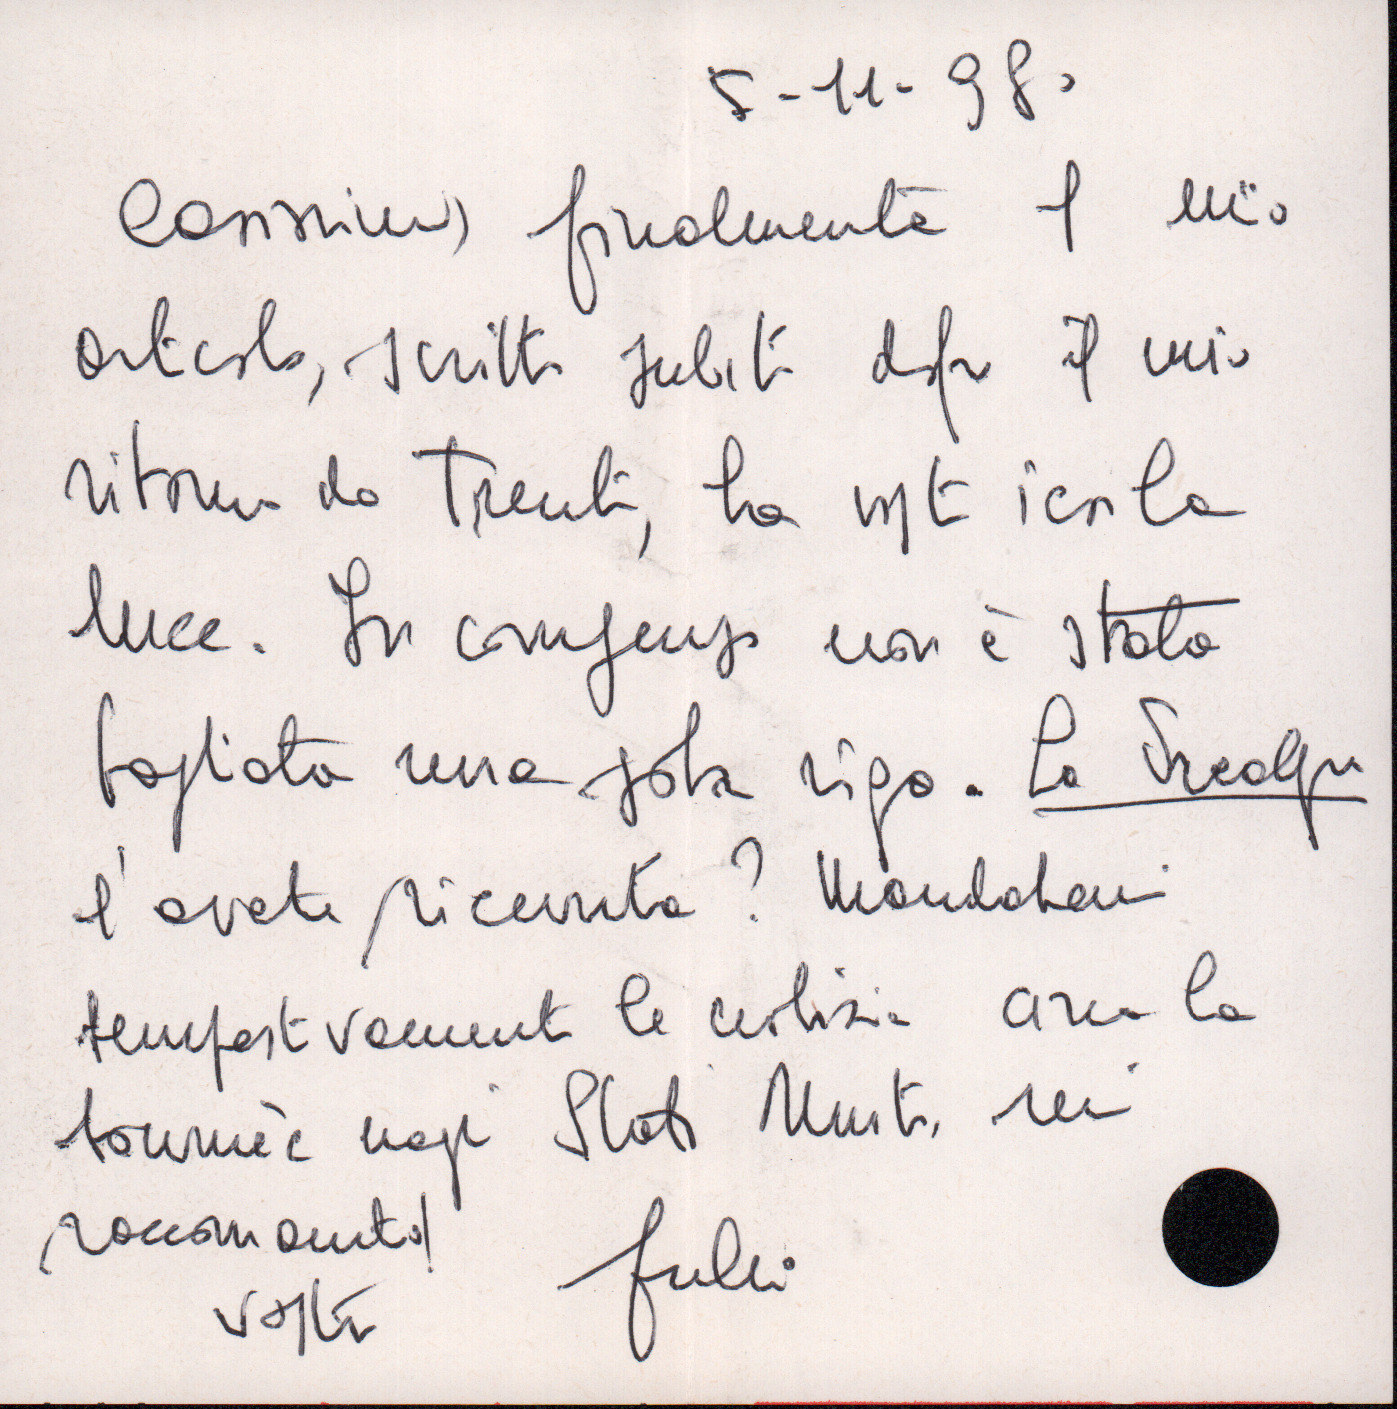 5-11-98.
Carissimi, finalmente il mio
articolo, scritto subito dopo il mio
ritorno da Trento, ha visto ieri la
luce. In compenso non è stata
tagliata una sola riga. La
l'avete ricevuta? Mandatemi
tempestivamente le notizie circa la
tournée negli Stati Uniti. mi
raccomando!
vostro Fulvio